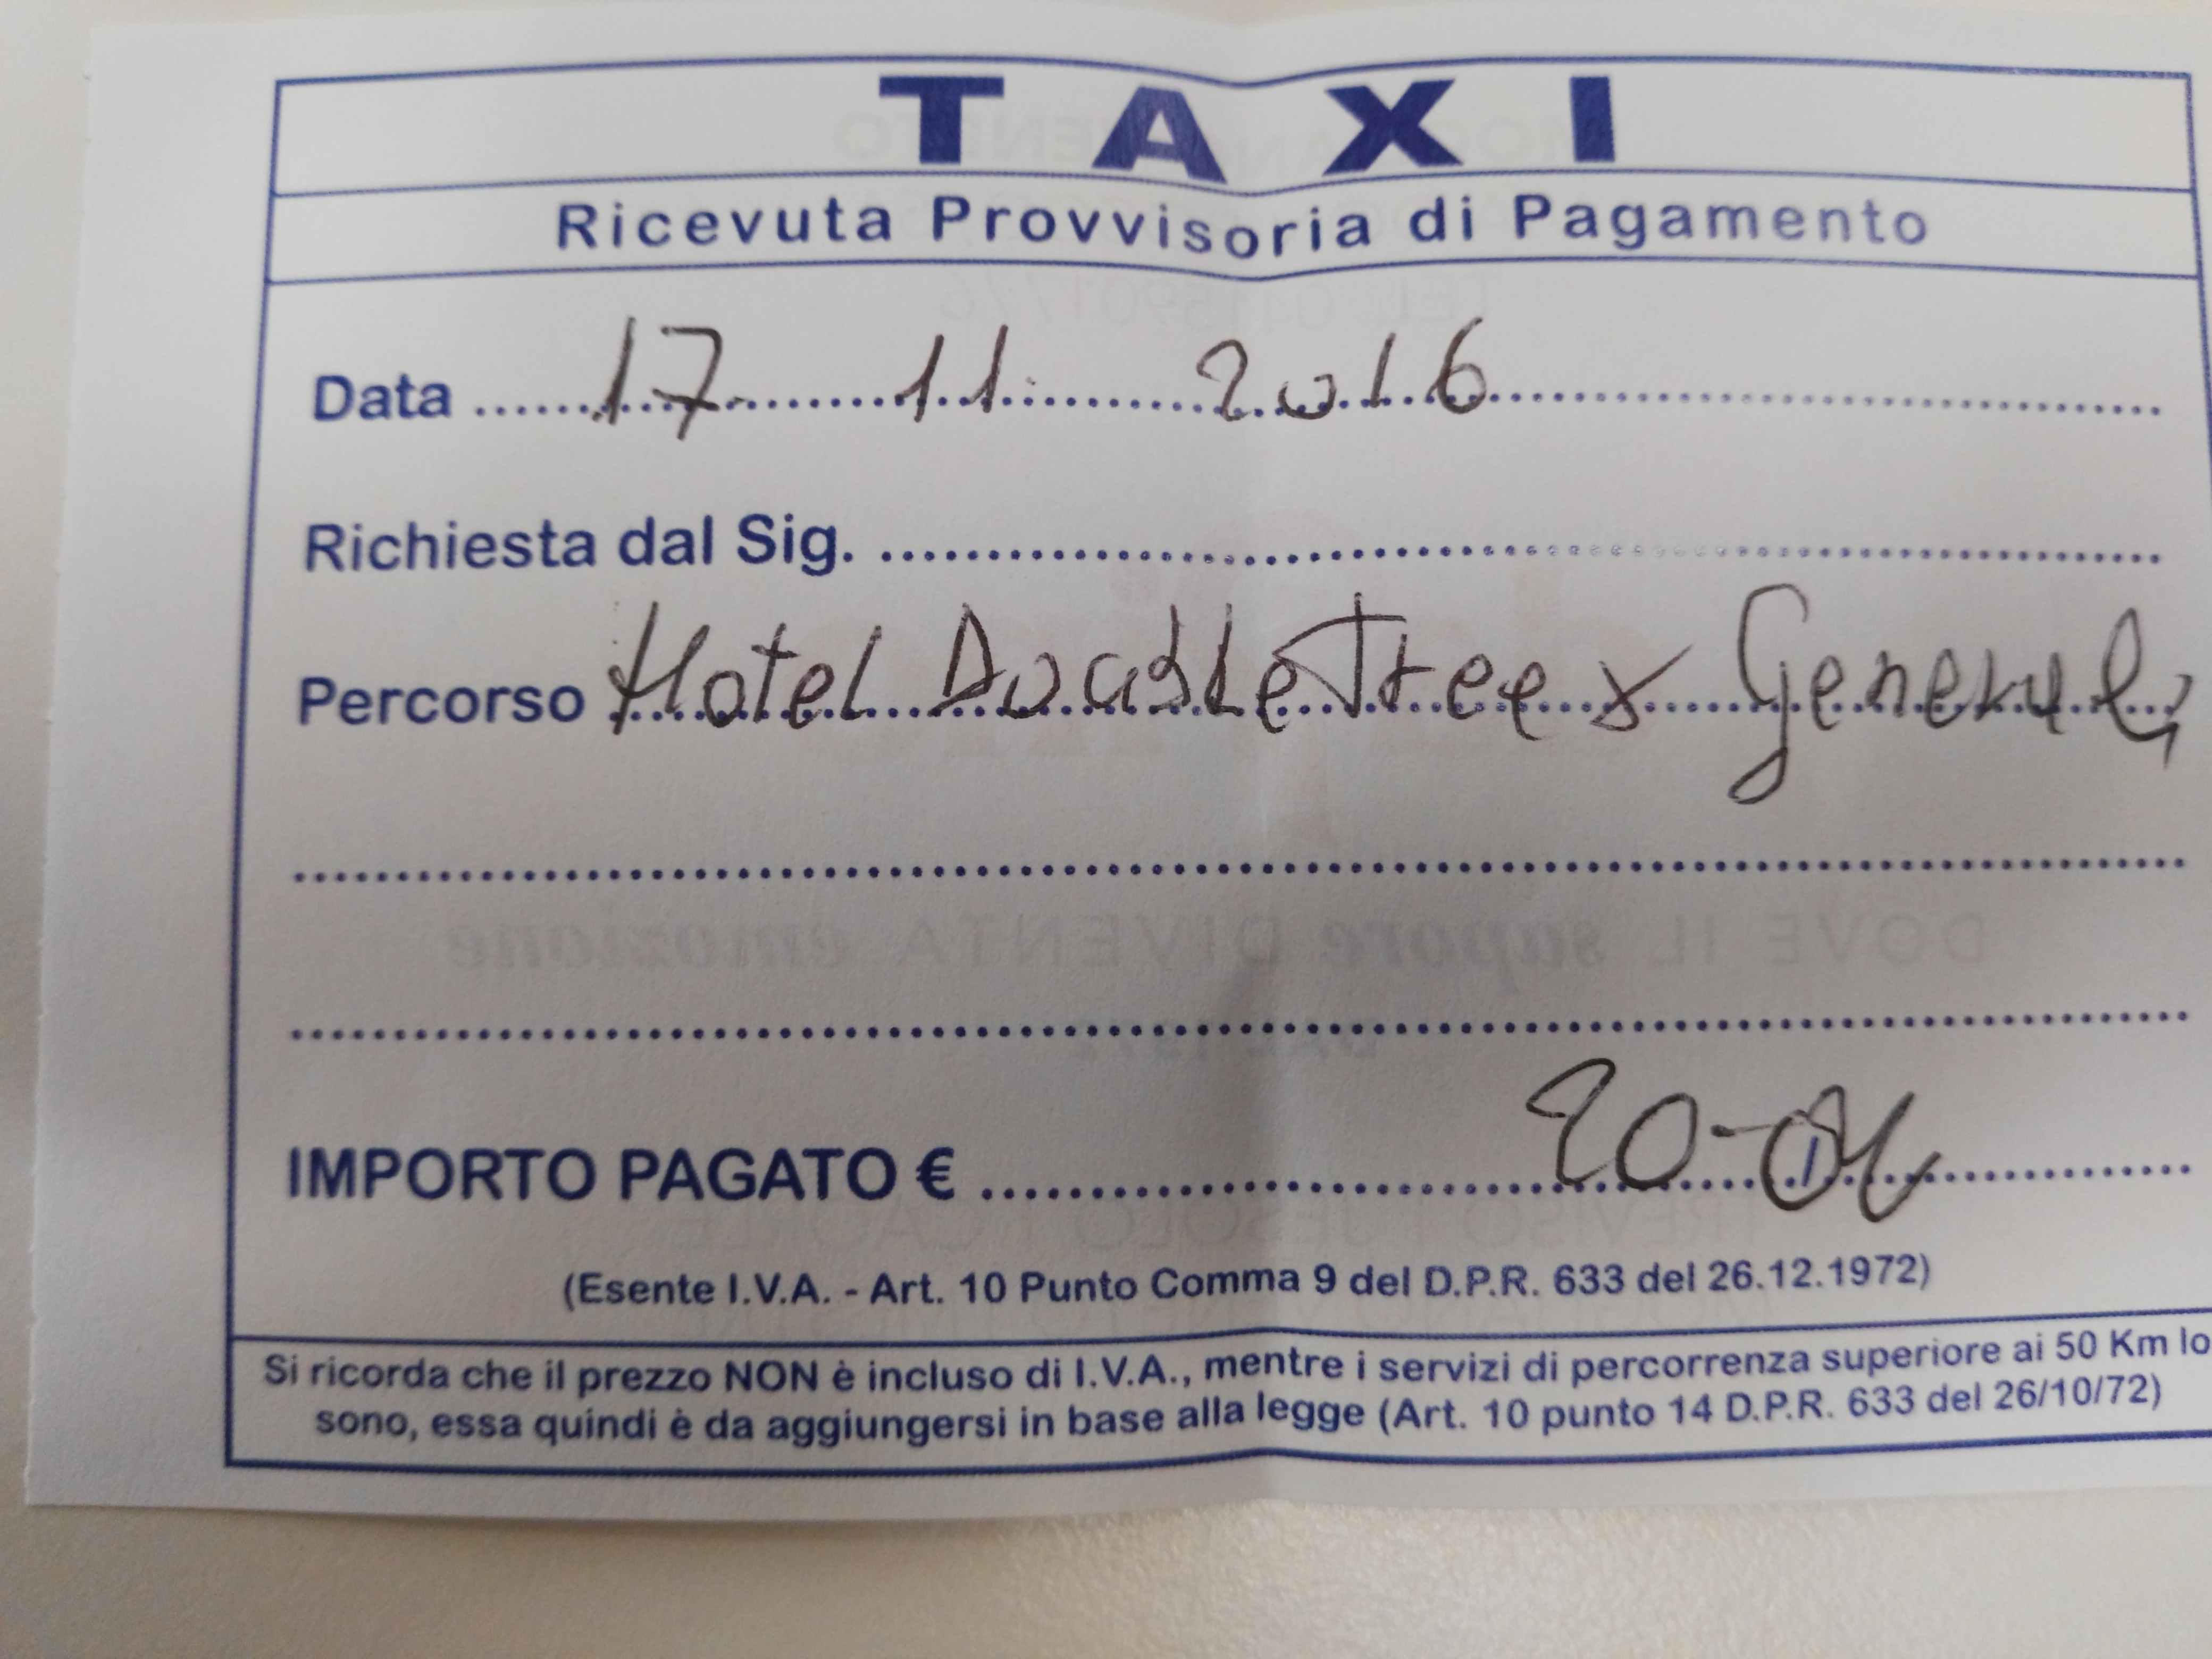 TAXI
Ricevuta Provvisoria di Pagamento
Data ...... 17 11 2016
Richiesta dal Sig. ......
Percorso Hotel DoubleTree x Generali
IMPORTO PAGATO € ...... 20-
(Esente I.V.A. - Art. 10 Punto Comma 9 del D.P.R. 633 del 26.12.1972)
Si ricorda che il prezzo NON è incluso di I.V.A., mentre i servizi di percorrenza superiore ai 50 Km lo
sono, essa quindi è da aggiungersi in base alla legge (Art. 10 punto 14 D.P.R. 633 del 26/10/72)
DOVE IL sapore DIVENTA emozione
DAL 1972
TREVISO | JESOLO | CAORLE